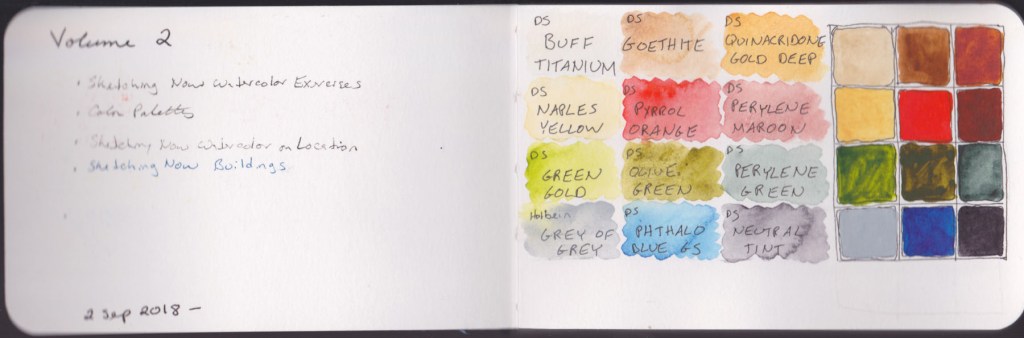 Volume 2
• Sketching Now Watercolor Exercises
• Color Palettes
• Sketching Now Watercolor on Location
• Sketching Now Buildings
2 Sep 2018 —
DS
BUFF
TITANIUM
DS
GOETHITE
DS
QUINACRIDONE
GOLD DEEP
DS
NAPLES
YELLOW
DS
PYRROL
ORANGE
DS
PERYLENE
MAROON
DS
GREEN
GOLD
DS
OLIVE
GREEN
DS
PERYLENE
GREEN
Holbein
GREY OF
GREY
DS
PHTHALO
BLUE GS
DS
NEUTRAL
TINT